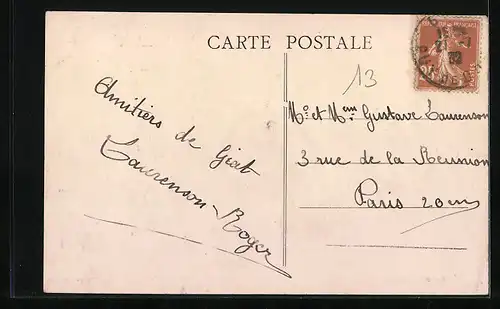 CARTE POSTALE
13
Amitiers de Giat
Laurenson-Roger
Mo. et Mme. Gustave Laurenson
3 rue de la Reunion
Paris 20em